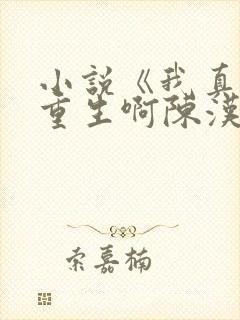 小說《我真
重生啊陳漢
索嘉楠